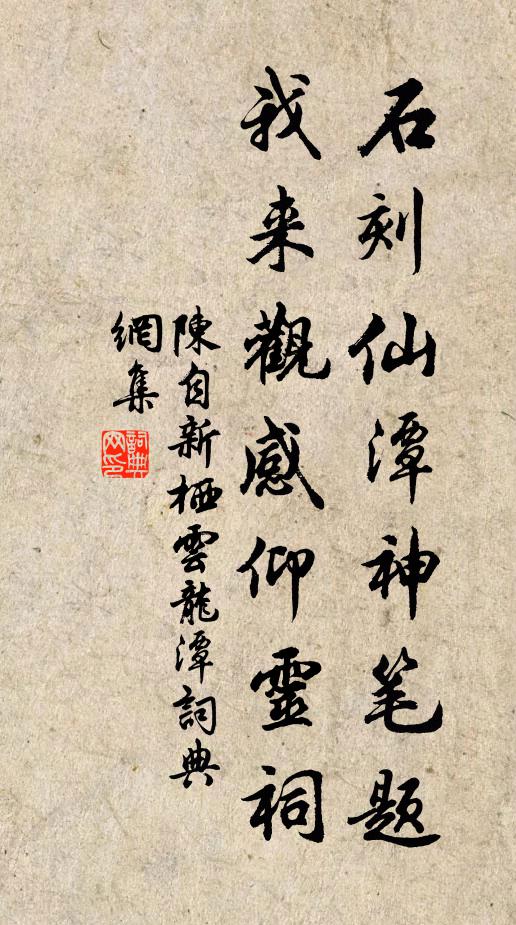 石刻仙潭神笔题
我来觀感仰靈祠
陳自新栖雲龍潭詞典
網集
詞典
网印